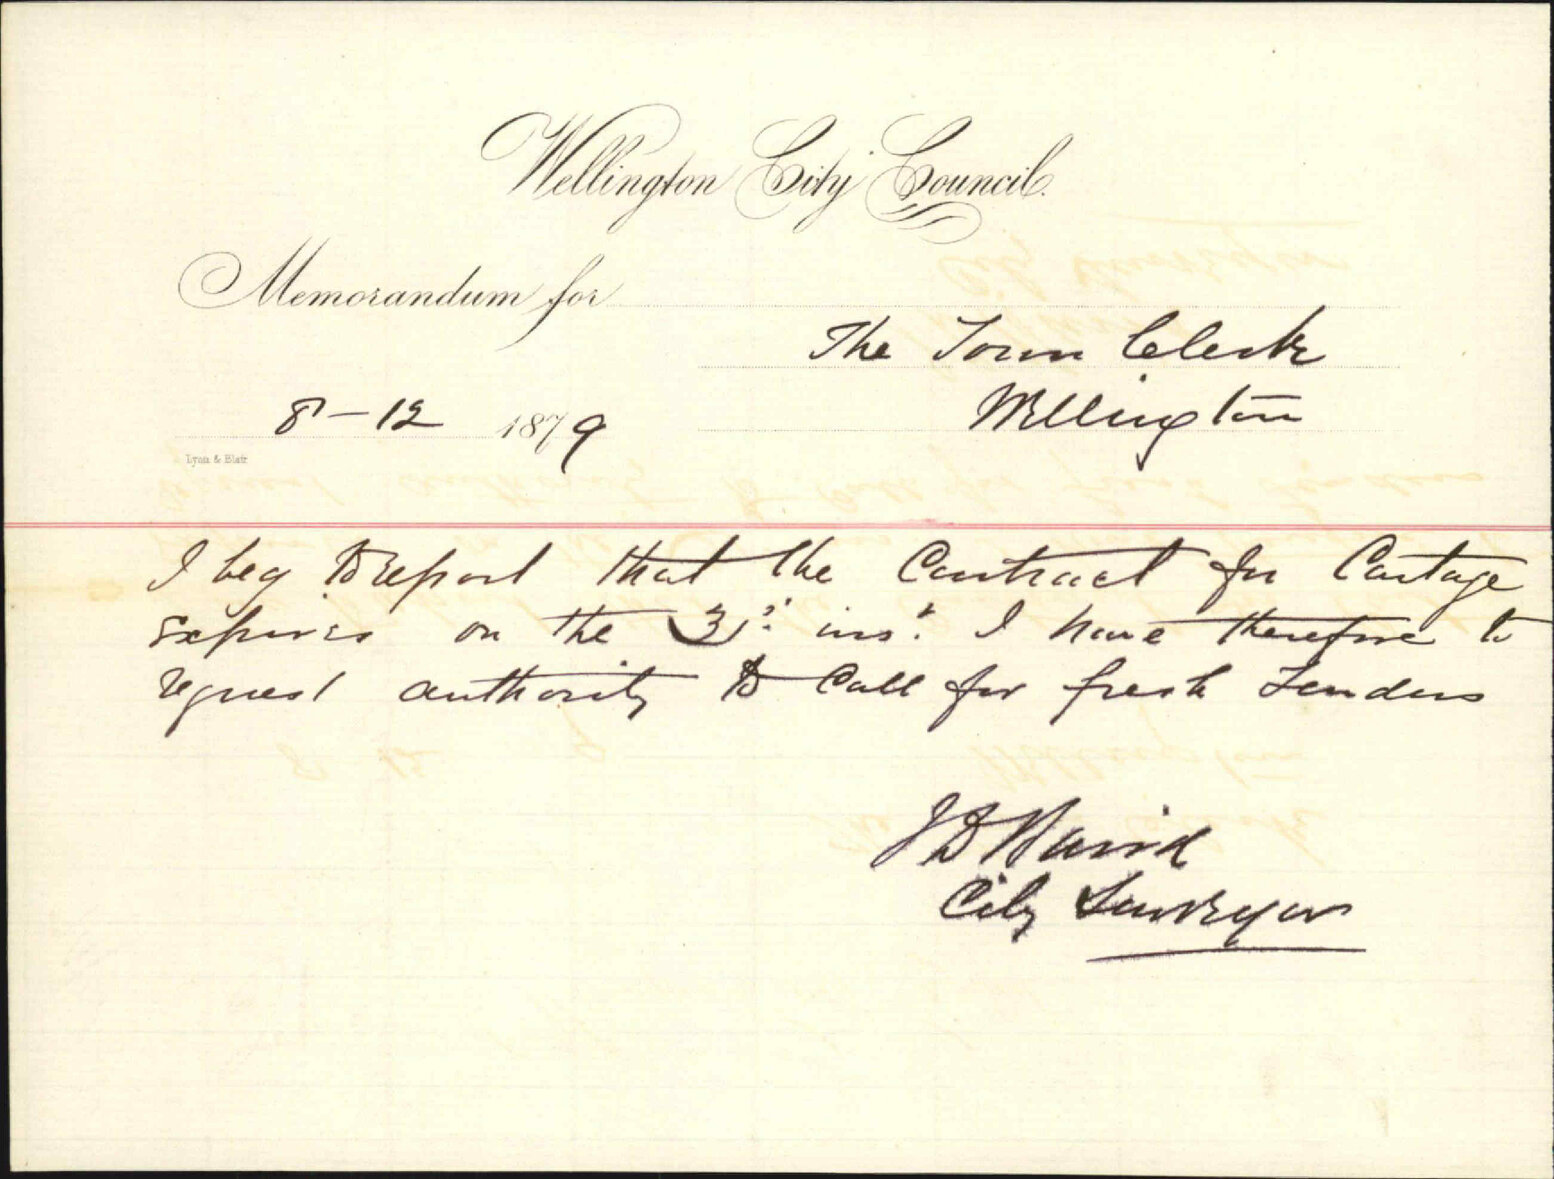 Wellington City Council.
Memorandum for
The Town Clerk
8-12 1879 Wellington
Lyon & Blair
I beg to report that the Contract for Cartage
expires on the 31st inst. I have therefore to
request authority to Call for fresh Tenders
J D Baird
City Surveyor